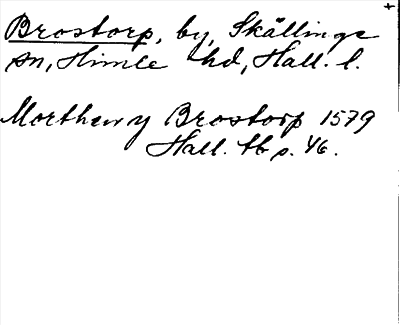 Brostorp, by, Skällinge
sn, Himle hd, Hall. l.
Morthen y Brostorp 1579
Hall. tb s. 46.